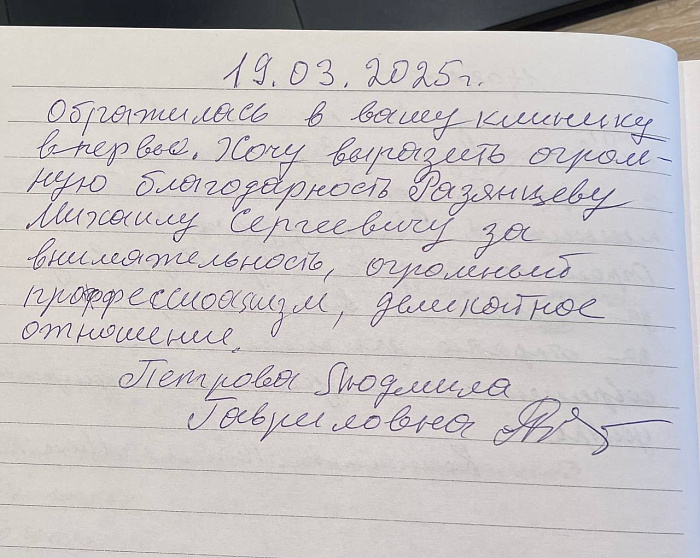 19.03.2025г.
Обратилась в вашу клинику
впервые. Хочу выразить огром-
ную благодарность Разянцеву
Михаилу Сергеевичу за
внимательность, огромный
профессиоанизм, деликатное
отношение.
Петрова Людмила
Гавриловна